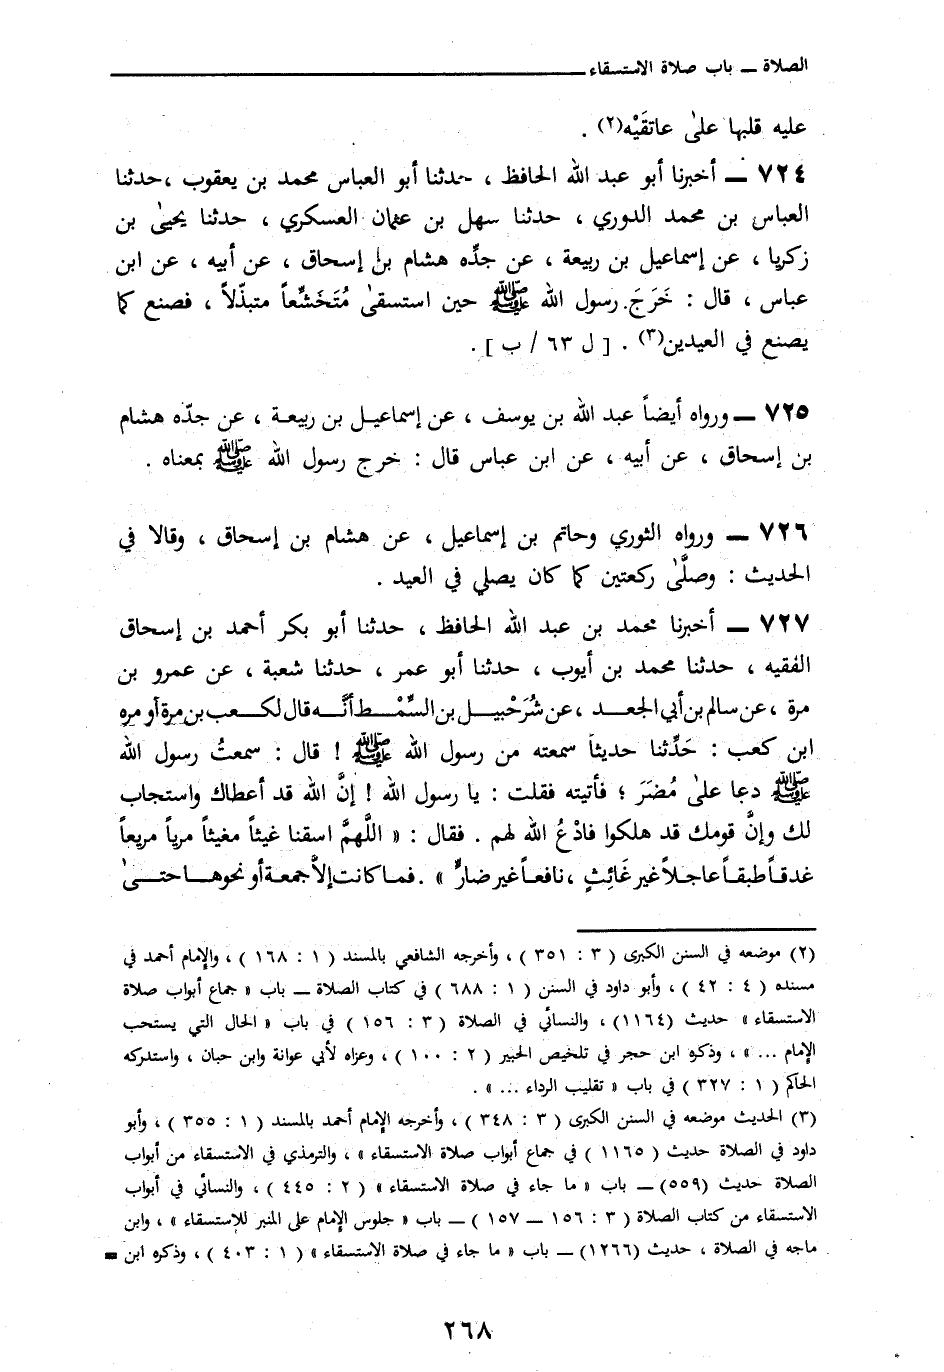 الصلاة ــ باب صلاة الاستسقاء
عليه قلبها علىٰ عاتقَيْه(٢) .
٧٢٤ ــ أخبرنا أبو عبد الله الحافظ ، حدثنا أبو العباس محمد بن يعقوب ، حدثنا
العباس بن محمد الدوري ، حدثنا سهل بن عثمان العسكري ، حدثنا يحيىٰ بن
زكريا ، عن إسماعيل بن ربيعة ، عن جدِّه هشام بن إسحاق ، عن أبيه ، عن ابن
عباس ، قال : خَرَجَ رسول الله ﷺ حين استسقىٰ مُتَخَشِّعاً متبذّلاً ، فصنع كما
يصنع في العيدين(٣) . [ ل ٦٣ / ب ] .
٧٢٥ ــ ورواه أيضاً عبد الله بن يوسف ، عن إسماعيل بن ربيعة ، عن جدّه هشام
بن إسحاق ، عن أبيه ، عن ابن عباس قال : خرج رسول الله ﷺ بمعناه .
٧٢٦ ــ ورواه الثوري وحاتم بن إسماعيل ، عن هشام بن إسحاق ، وقالا في
الحديث : وصلَّىٰ ركعتين كما كان يصلي في العيد .
٧٢٧ ــ أخبرنا محمد بن عبد الله الحافظ ، حدثنا أبو بكر أحمد بن إسحاق
الفقيه ، حدثنا محمد بن أيوب ، حدثنا أبو عمر ، حدثنا شعبة ، عن عمرو بن
مرة ، عن سالم بن أبي الجعد ، عن شُرَحْبيل بن السِّمْط أنَّه قال لكعب بن مرة أو مره
ابن كعب : حَدِّثنا حديثاً سمعته من رسول الله ﷺ ! قال : سمعتُ رسول الله
ﷺ دعا علىٰ مُضَرَ ؛ فأتيته فقلت : يا رسول الله ! إنَّ الله قد أعطاك واستجاب
لك وإنَّ قومك قد هلكوا فادْعُ الله لهم . فقال : « اللَّهمَّ اسقنا غيثاً مغيثاً مرياً مريعاً
غدقاً طبقاً عاجلاً غير غَائِثٍ ، نافعاً غير ضارٍّ » . فما كانت إلاَّ جمعة أو نحوها حتىٰ
(٢) موضعه في السنن الكبرى ( ٣ : ٣٥١ ) ، وأخرجه الشافعي بالمسند ( ١ : ١٦٨ ) ، والإمام أحمد في
مسنده ( ٤ : ٤٢ ) ، وأبو داود في السنن ( ١ : ٦٨٨ ) في كتاب الصلاة ــ باب « جماع أبواب صلاة
الاستسقاء » حديث (١١٦٤) ، والنسائي في الصلاة ( ٣ : ١٥٦ ) في باب « الحال التي يستحب
الإمام ... » ، وذكره ابن حجر في تلخيص الحبير ( ٢ : ١٠٠ ) ، وعزاه لأبي عوانة وابن حبان ، واستدركه
الحاكم ( ١ : ٣٢٧ ) في باب « تقليب الرداء ... » .
(٣) الحديث موضعه في السنن الكبرى ( ٣ : ٣٤٨ ) ، وأخرجه الإمام أحمد بالمسند ( ١ : ٣٥٥ ) ، وأبو
داود في الصلاة حديث ( ١١٦٥ ) في جماع أبواب صلاة الاستسقاء » ، والترمذي في الاستسقاء من أبواب
الصلاة حديث (٥٥٩) ــ باب « ما جاء في صلاة الاستسقاء » ( ٢ : ٤٤٥ ) ، والنسائي في أبواب
الاستسقاء من كتاب الصلاة ( ٣ : ١٥٦ ــ ١٥٧ ) ــ باب « جلوس الإمام على المنبر للإستسقاء » ، وابن
ماجه في الصلاة ، حديث (١٢٦٦) ــ باب « ما جاء في صلاة الاستسقاء » ( ١ : ٤٠٣ ) ، وذكره ابن =
٢٦٨